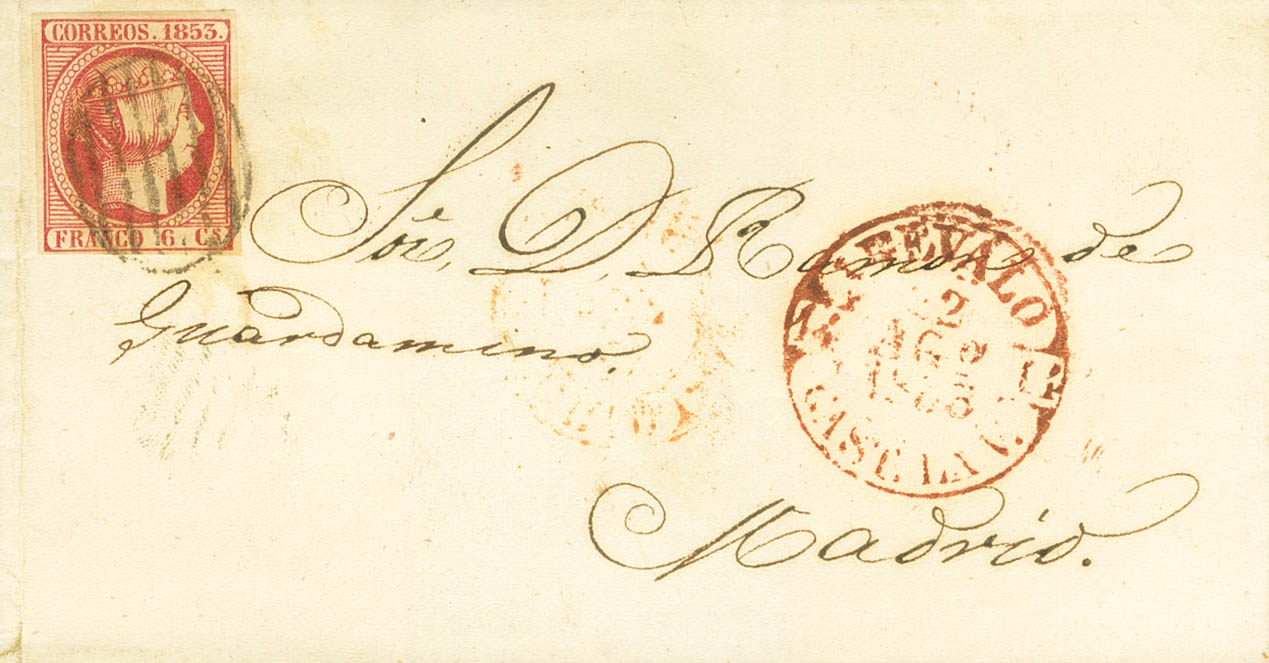 CORREOS. 1853.
FRANCO 6. Cs.
Sor. D. Ramon de
Guardamino.
AREVALO
2
AGO
CAST. LA V.
Madrid.